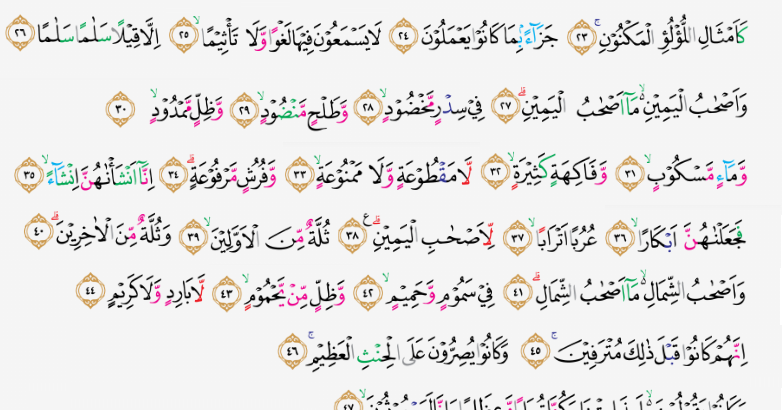 كَاَمْثَالِ اللُّؤْلُؤِ الْمَكْنُوْنِۚ ٢٣ جَزَاۤءًۢ بِمَا كَانُوْا يَعْمَلُوْنَ ٢٤ لَا يَسْمَعُوْنَ فِيْهَا لَغْوًا وَّلَا تَأْثِيْمًاۙ ٢٥ اِلَّا قِيْلًا سَلٰمًا سَلٰمًا ٢٦
وَاَصْحٰبُ الْيَمِيْنِ ەۙ مَآ اَصْحٰبُ الْيَمِيْنِۗ ٢٧ فِيْ سِدْرٍ مَّخْضُوْدٍۙ ٢٨ وَّطَلْحٍ مَّنْضُوْدٍۙ ٢٩ وَّظِلٍّ مَّمْدُوْدٍۙ ٣٠
وَّمَاۤءٍ مَّسْكُوْبٍۙ ٣١ وَّفَاكِهَةٍ كَثِيْرَةٍۙ ٣٢ لَّا مَقْطُوْعَةٍ وَّلَا مَمْنُوْعَةٍۙ ٣٣ وَّفُرُشٍ مَّرْفُوْعَةٍۗ ٣٤ اِنَّآ اَنْشَأْنٰهُنَّ اِنْشَاۤءًۙ ٣٥
فَجَعَلْنٰهُنَّ اَبْكَارًاۙ ٣٦ عُرُبًا اَتْرَابًاۙ ٣٧ لِّاَصْحٰبِ الْيَمِيْنِۗ ࣖ ٣٨ ثُلَّةٌ مِّنَ الْاَوَّلِيْنَۙ ٣٩ وَثُلَّةٌ مِّنَ الْاٰخِرِيْنَۗ ٤٠
وَاَصْحٰبُ الشِّمَالِ ەۙ مَآ اَصْحٰبُ الشِّمَالِۗ ٤١ فِيْ سَمُوْمٍ وَّحَمِيْمٍۙ ٤٢ وَّظِلٍّ مِّنْ يَّحْمُوْمٍۙ ٤٣ لَّا بَارِدٍ وَّلَا كَرِيْمٍ ٤٤
اِنَّهُمْ كَانُوْا قَبْلَ ذٰلِكَ مُتْرَفِيْنَۚ ٤٥ وَكَانُوْا يُصِرُّوْنَ عَلَى الْحِنْثِ الْعَظِيْمِۚ ٤٦